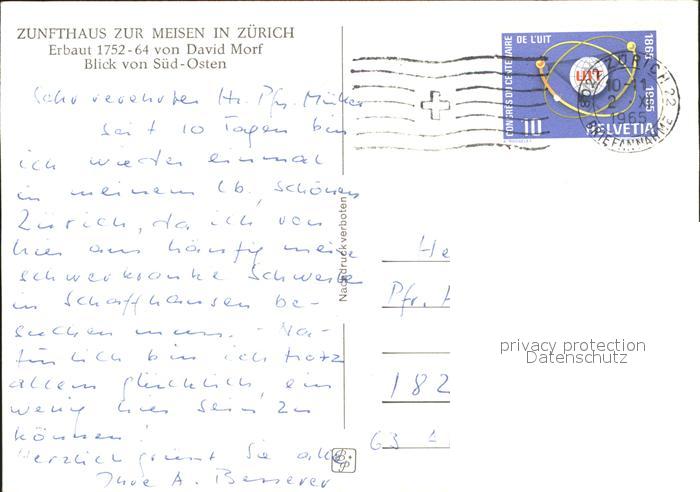 ZUNFTHAUS ZUR MEISEN IN ZÜRICH
Erbaut 1752-64 von David Morf
Blick von Süd-Osten
Sehr verehrter Hr. Pfr. Müller
Seit 10 Tagen bin
ich wieder einmal
in meinem lb, schönen
Zürich, da ich von
hier aus häufig meine
schwerkranke Schwester
in Schaffhausen be-
suchen muss. - Na-
türlich bin ich trotz
allem glücklich, ein
wenig hier sein zu
können!
Herzlich grüsst Sie alle
Ihre A. Besserer
Nachdruckverboten
B+P
CONGRÈS DU CENTENAIRE
DE L'UIT
1865
1965
UIT
10
HELVETIA
ZÜRICH 22
10-11
2. X.
1965
BRIEFANNAHME
He
Pfr.
182
63
privacy protection
Datenschutz